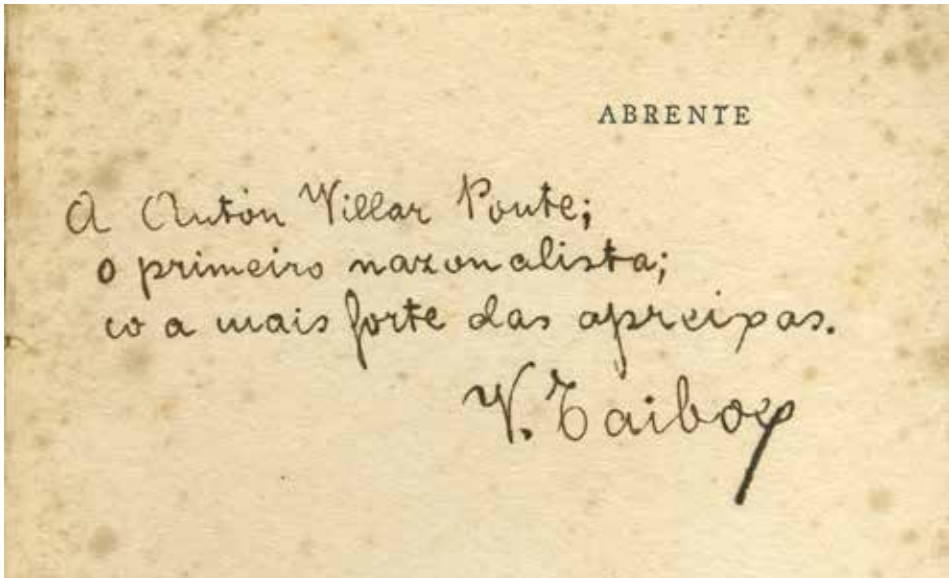 ABRENTE
A Antón Villar Ponte;
o primeiro nazonalista;
co a mais forte das apreixas.
V. Taibo